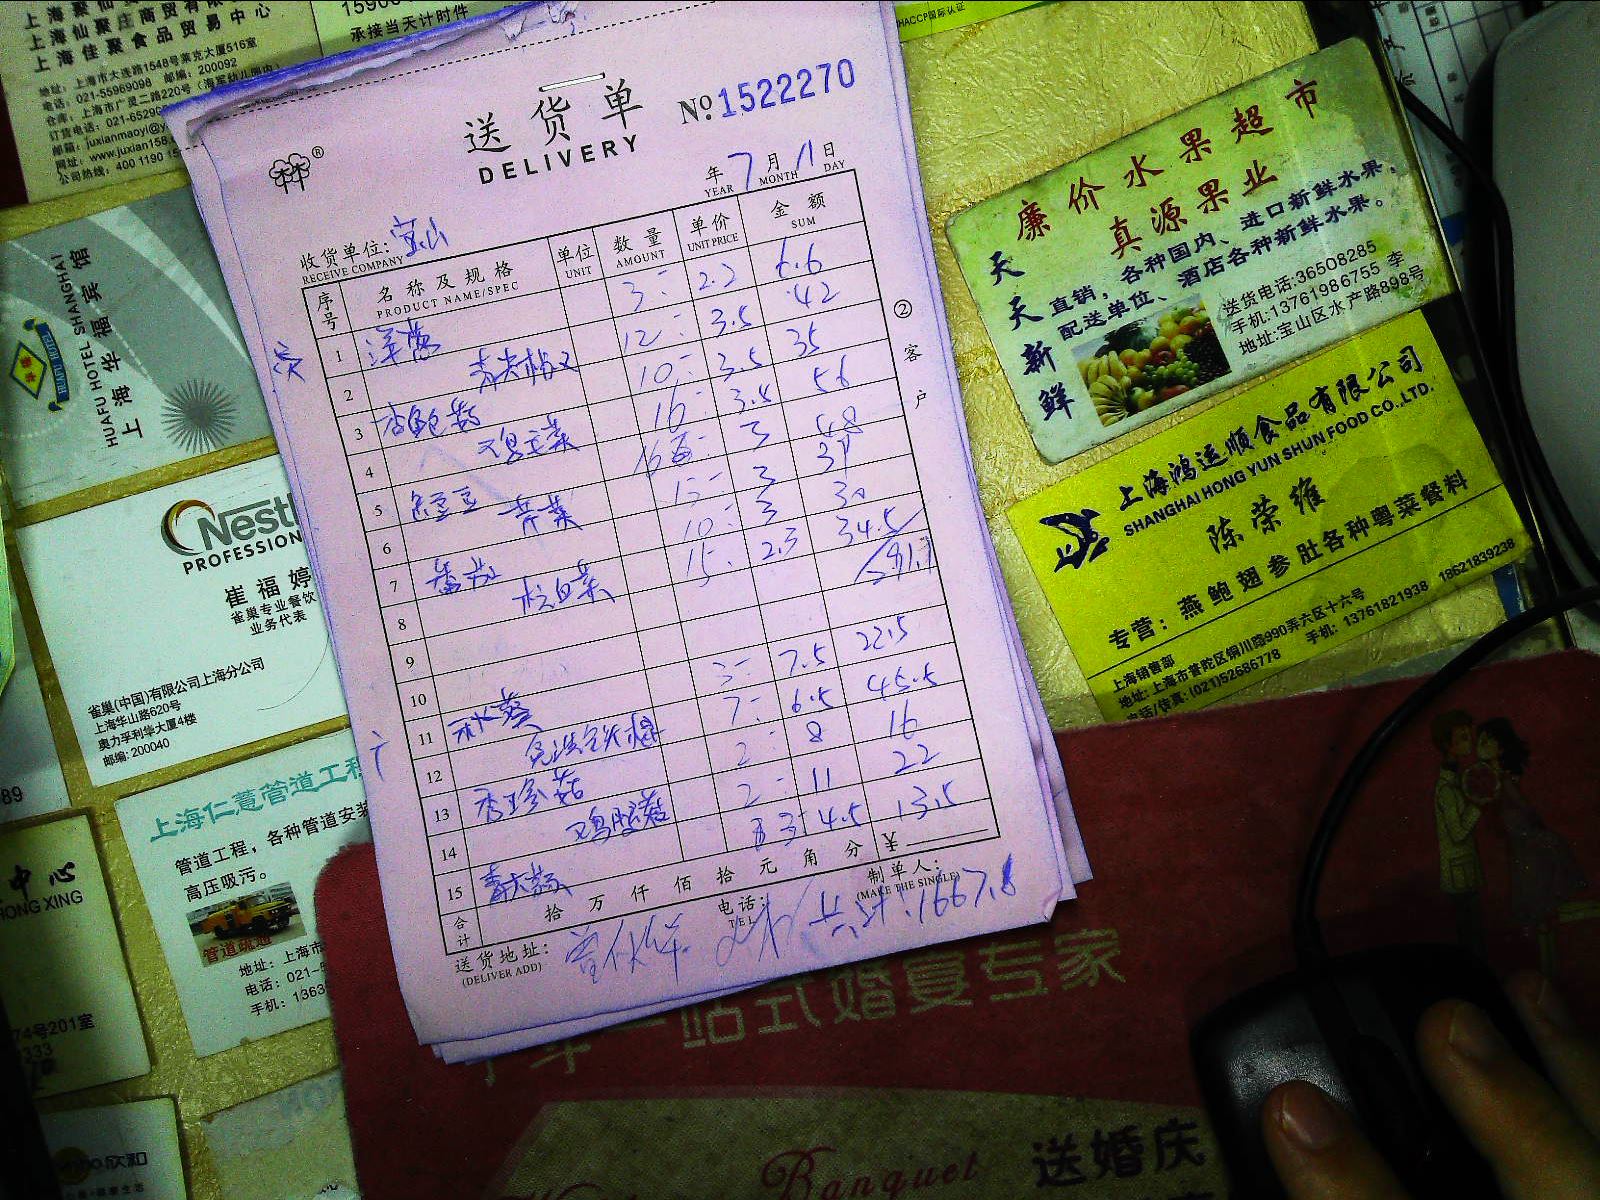 上海聚仙
上海仙聚庄商贸有限
上海佳聚食品贸易中心
地址：上海市大连路1548号莱克大厦516室
电话：021-55969098 邮编：200092
仓库：上海市广灵二路220号（海军幼儿园内）
订货电话：021-6529
邮箱：juxianmaoyi@y
网址：www.juxian158.
公司热线：400 1190 15
1590
承接当天计时件
HACCP国际认证
送货单
DELIVERY
№ 1522270
年 7 月 11 日
YEAR MONTH DAY
收货单位：宝山
RECEIVE COMPANY
序号 名称及规格 单位 数量 单价 金额
PRODUCT NAME/SPEC UNIT AMOUNT UNIT PRICE SUM
1 洋葱 3 2.2 6.6
2 青尖椒 12 3.5 42
3 杏鲍菇 10 3.5 35
4 鸡毛菜 16 3.5 56
5 16 3 48
6 芹菜 3
7 番茄 10 3 30
8 15 2.3 34.5
9
10
11 秋葵 3 7.5 22.5
12 7 6.5 45.5
13 秀珍菇 2 8 16
14 鸡腿菇 2 11 22
15 青大蒜 3 4.5 13.5
合计 拾 万 仟 佰 拾 元 角 分 ¥
送货地址：
(DELIVER ADD)
电话：
TEL
制单人：
(MAKE THE SINGLE)
共计：1667.8
② 客户
HUAFU HOTEL SHANGHAI
上海华福宾馆
HUAFU HOTEL
Nest
PROFESSION
崔福婷
雀巢专业餐饮
业务代表
雀巢(中国)有限公司上海分公司
上海华山路620号
奥力孚利华大厦4楼
邮编: 200040
上海仁薏管道工程
管道工程，各种管道安装
高压吸污。
管道疏通
地址：上海市
电话：021-5
手机：1363
89
中心
HONG XING
74号201室
333
欣和
廉价水果超市
真源果业
天天新鲜
直销，各种国内、进口新鲜水果，
配送单位、酒店各种新鲜水果。
送货电话:36508285
手机:13761986755 李
地址:宝山区水产路898号
上海鸿运顺食品有限公司
SHANGHAI HONG YUN SHUN FOOD CO.,LTD.
陈荣维
专营：燕鲍翅参肚各种粤菜餐料
上海销售部
地址: 上海市普陀区铜川路990弄六区十六号
电话/传真: (021)52686778 手机：13761821938 18621839238
一站式婚宴专家
Banquet
送婚庆